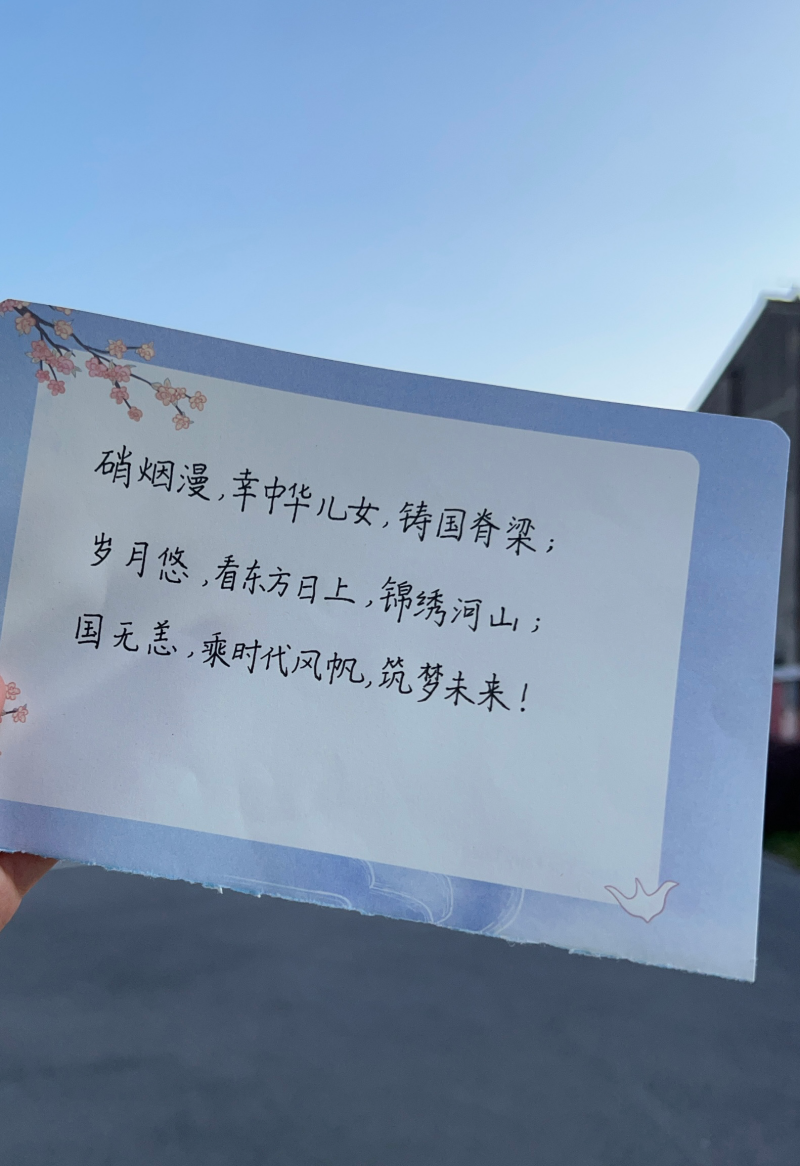 硝烟漫,幸中华儿女,铸国脊梁;
岁月悠,看东方日上,锦绣河山;
国无恙,乘时代风帆,筑梦未来!